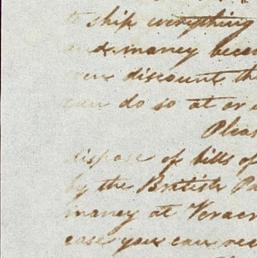 to ship everything
and money beco
discount th
can do so at or
Plea
dispose of bills of
by the British Pa
money at Verac
case you can re